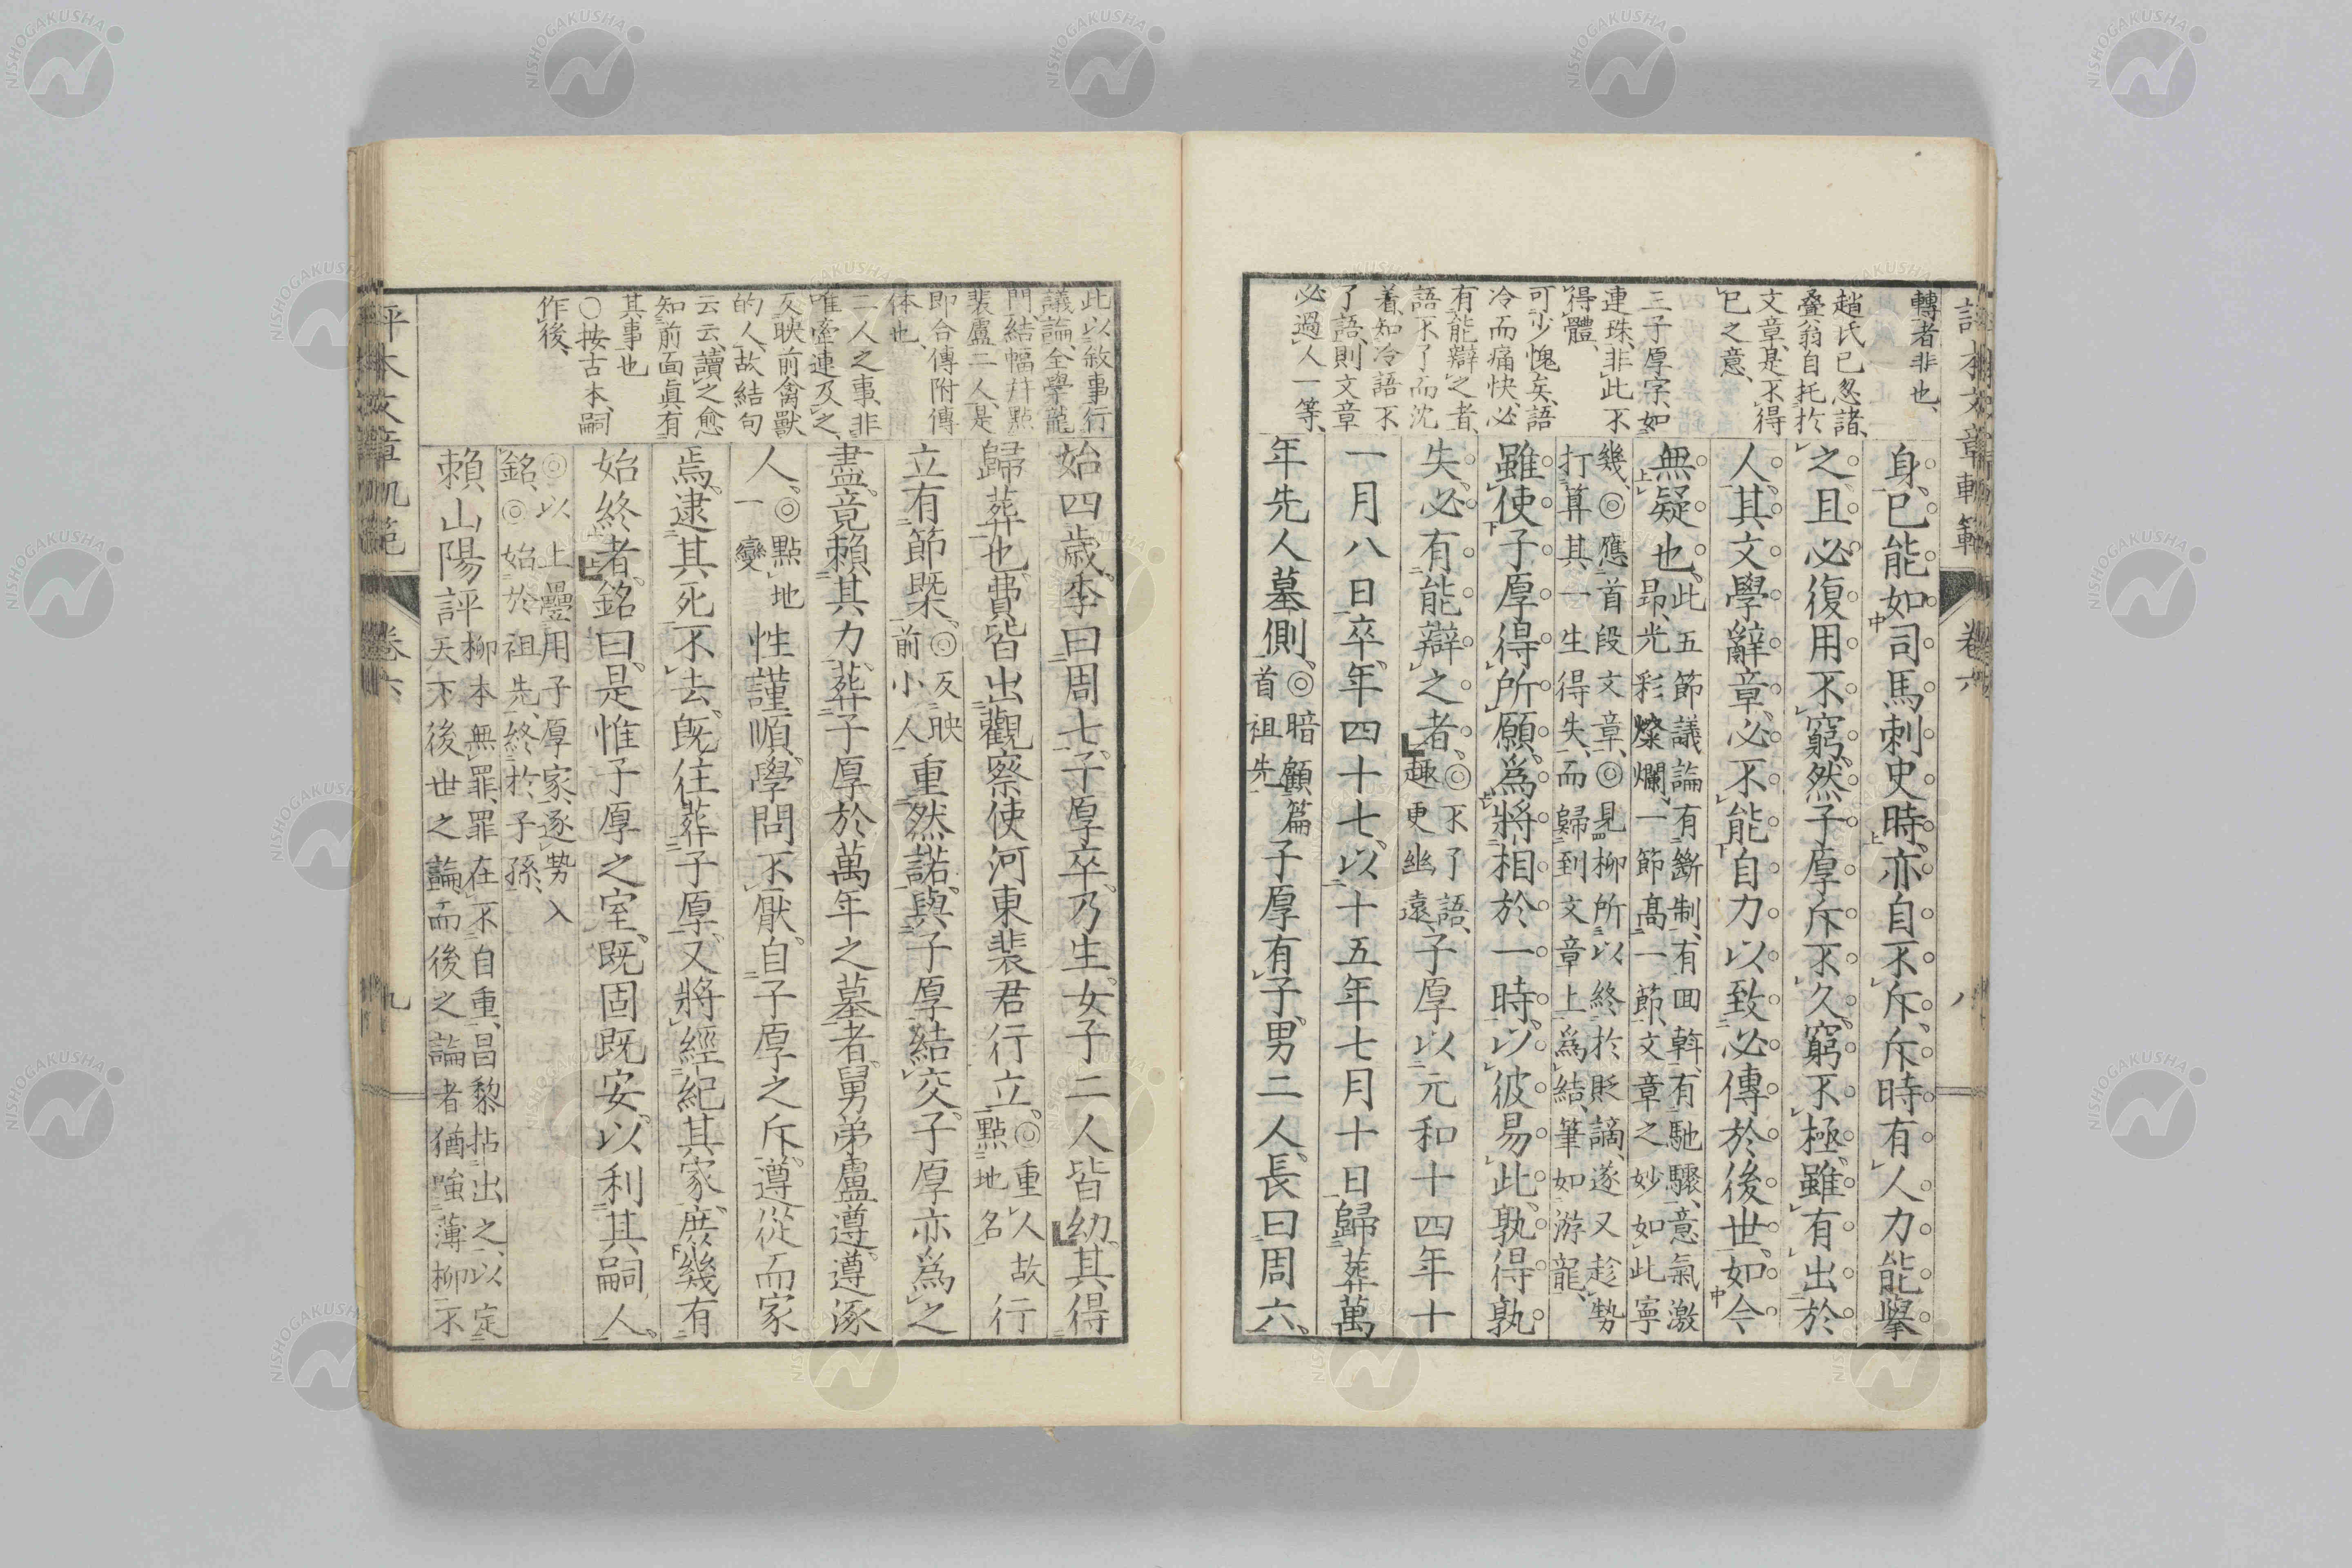 轉者非也、
趙氏已忽諸、
叠翁自托於
文章、是不得
已之意、
三子厚字、如
連珠、非此不
得體、
可少愧矣、語
冷而痛快、必
有能辯之者、
語不了而沈
着、知冷語不
了語、則文章
必過人一等、
身、已能如司馬刺史時、亦自不斥、斥時有人力能擧
之、且必復用不窮、然子厚斥不久、窮不極、雖有出於
人、其文學辭章、必不能自力以致必傳於後世、如今
無疑也、
此五節議論有斷制、有回斡、有馳驟、意氣激
昂、光彩燦爛、一節高一節、文章之妙如此寧
幾、◎應首段文章、◎見柳所以終於貶謫、遂又趁勢
打算其一生得失、而歸到文章上爲結、筆如游龍、
雖使子厚得所願、爲將相於一時、以彼易此、孰得孰
失、必有能辯之者、
◎不了語、
趣更幽遠、
子厚以元和十四年十
一月八日卒、年四十七、以十五年七月十日歸葬萬
年先人墓側、
◎暗顧篇
首祖先
子厚有子、男二人、長曰周六、
卷六
八
此以敘事行
議論、全學龍
門、結幅幷點
裴盧二人、是
即合傳附傳
体也、
二人之事、非
唯牽連及之、
反映前禽獸
的人、故結句
云云、讀之愈
知前面眞有
其事也
○按古本、嗣
作後、
始四歳、季曰周七、子厚卒、乃生、女子二人皆幼、其得
歸葬也、費皆出觀察使河東裴君行立、
◎重人故
點地名
行
立有節槩、
◎反映
前小人
重然諾、與子厚結交、子厚亦爲之
盡、竟賴其力、葬子厚於萬年之墓者、舅弟盧遵、遵涿
人、
◎點地
一變
性謹順、學問不厭、自子厚之斥、遵從而家
焉、逮其死不去、既往葬子厚、又將經紀其家、庶幾有
始終者、銘曰、是惟子厚之室、既固既安、以利其嗣人、
◎以上疊用子厚家、逐勢入
銘、◎始於祖先、終於子孫、
賴山陽評
柳本無罪、罪在不自重、昌黎拈出之、以定
天下後世之論、而後之論者猶嗤薄柳不
評本文章軌範
卷六
九